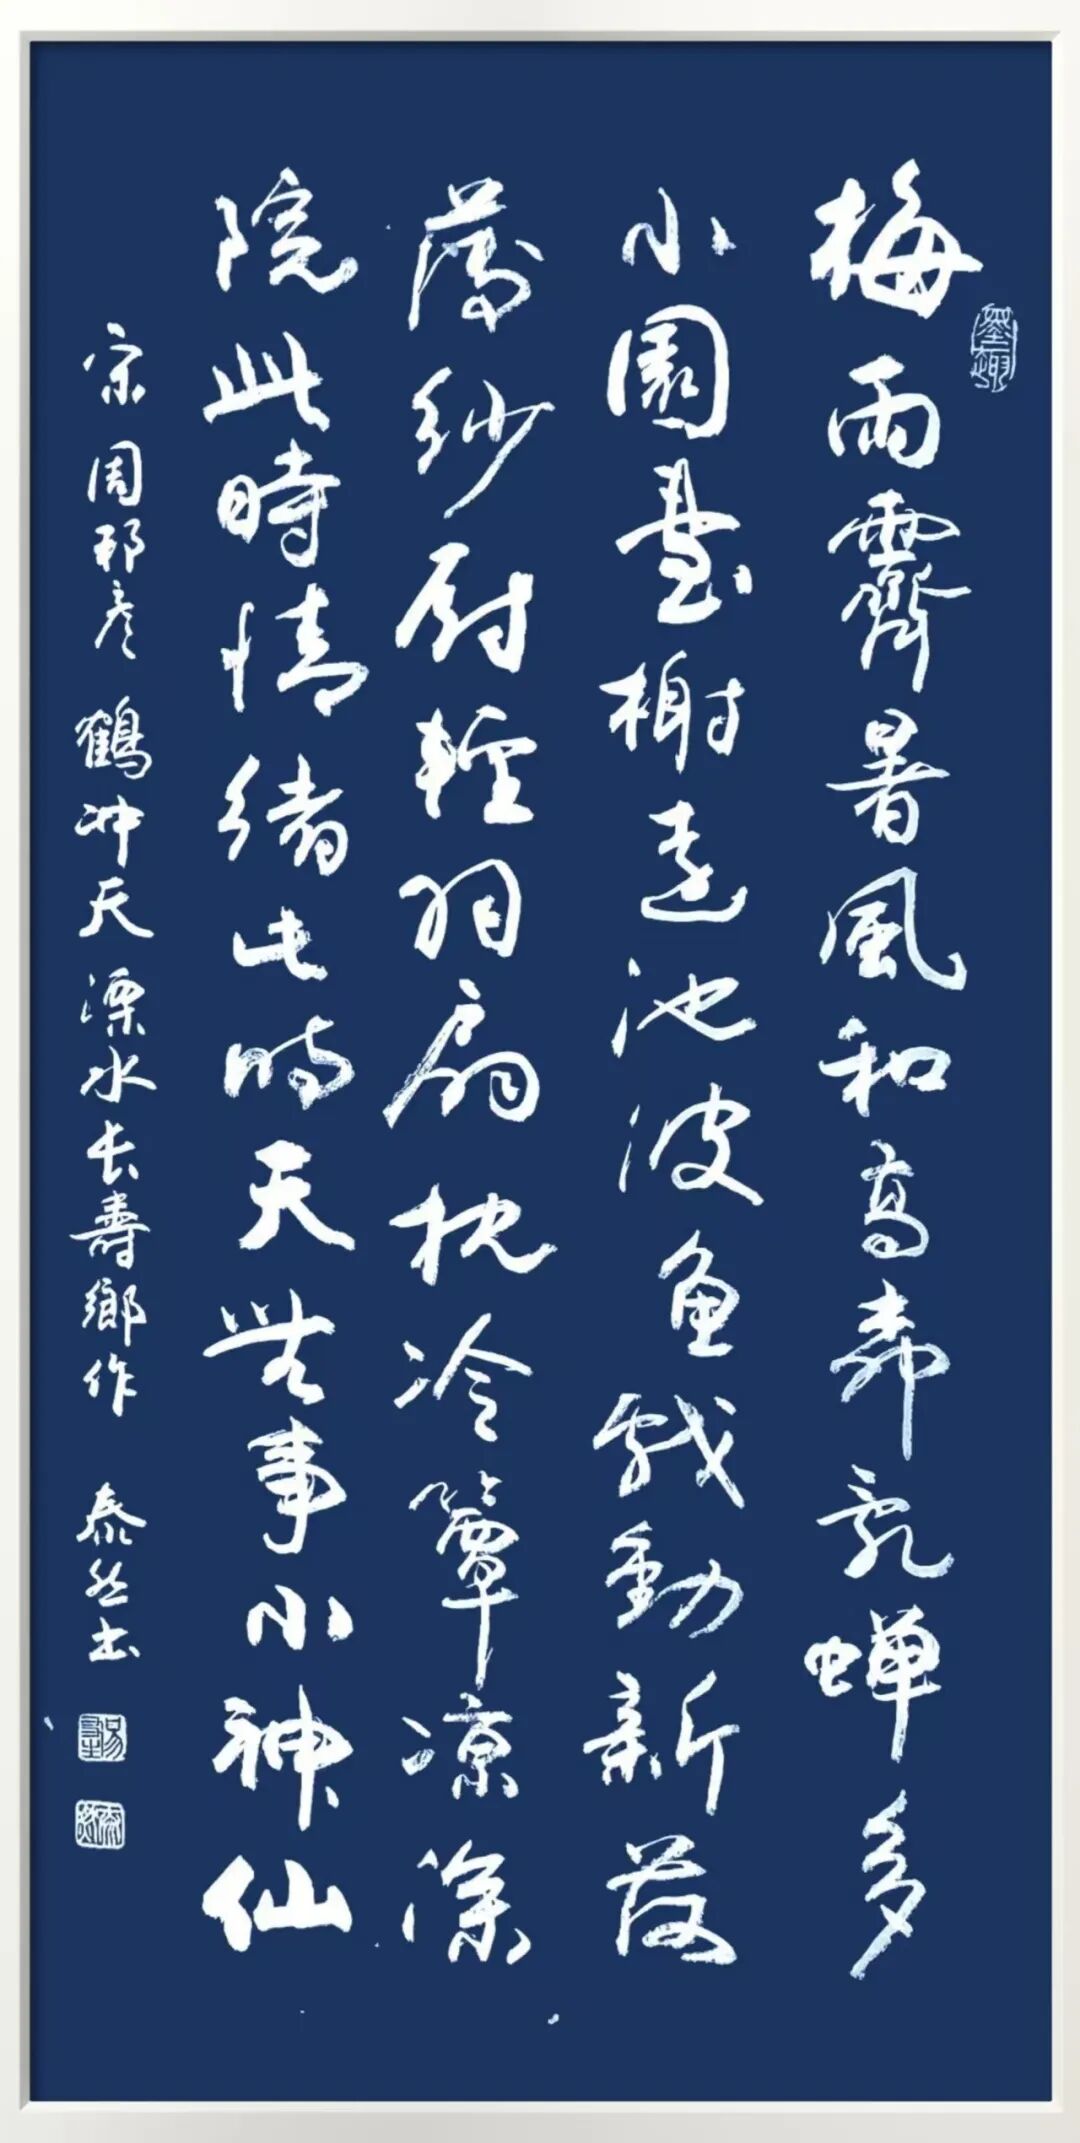 梅雨霽暑風和高柳亂蝉多
小園臺榭遠池波鱼戲動新荷
薄紗厨輕羽扇枕冷簟凉深
院此時情緒此时天無事小神仙
宋周邦彦 鶴冲天 溧水长壽鄉作 泰然书
墨趣